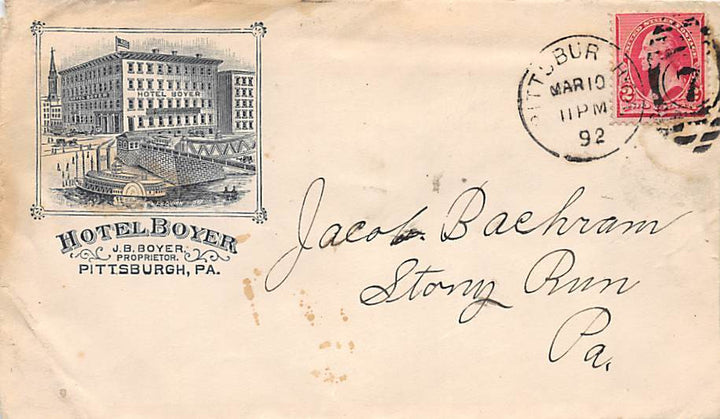 HOTEL BOYER
HOTEL BOYER
J.B. BOYER,
PROPRIETOR.
PITTSBURGH, PA.
PITTSBURGH
MAR 10
11 PM
92
2
7
Jacob. Bachram
Stony Run
Pa.